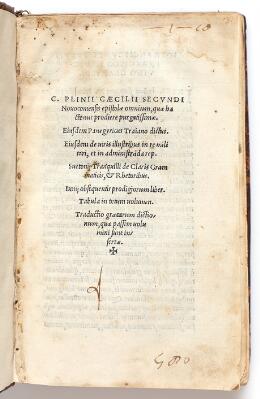 C. PLINII CÆCILII SECVNDI
Nouocomensis epistolæ omnium, quæ ha
ctenus prodiere purgatissimæ.
Eiusdem Panegyricus Traiano dictus.
Eiusdem de uiris illustribus in re mili
tari, et in administrãda rep.
Suetonij Tranquilli de Claris Gram
maticis, & Rhetoribus.
Iulij obsequentis prodigiorum liber.
Tabula in totum uolumen.
Traductio græcarum dictio
num, quæ passim uolu
mini sunt in
sertæ.